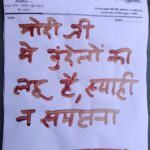 मोदी जी
ये बुंदेलों का
लहू है, स्याही
न समझना